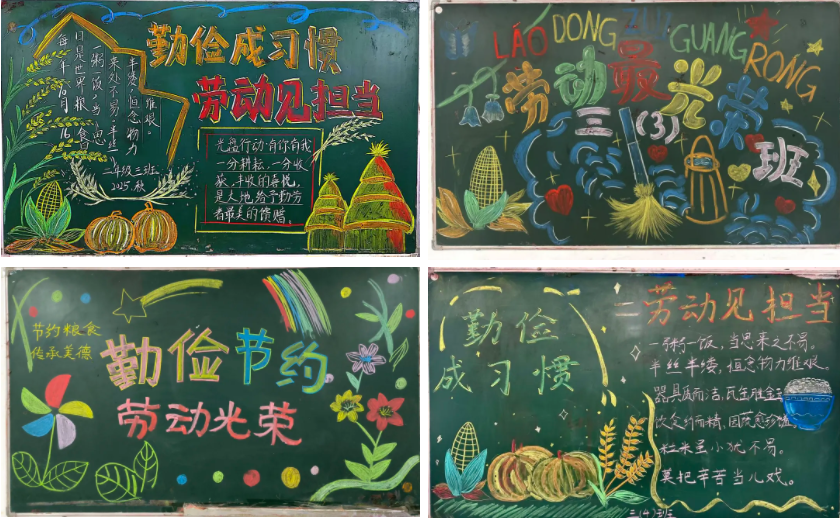 勤俭成习惯
劳动见担当
每年10月16
日是世界粮食
一粥一饭,当思
来处不易;半丝
半缕,恒念物力
维艰。
二年级三班
2025.秋
光盘行动 有你有我
一分耕耘,一分收
获,丰收的喜悦,
是大地给予勤劳
者最美的馈赠
LÁO DONG ZUI GUANG RONG
劳动最光荣
三(3)
班
节约粮食
传承美德
勤俭节约
劳动光荣
勤俭
成习惯
劳动见担当
一粥一饭,当思来之不易。
半丝半缕,恒念物力维艰。
器具质而洁,瓦缶胜金
饮食约而精,园蔬愈珍馐
粒米虽小犹不易。
莫把辛苦当儿戏。
三(4)班